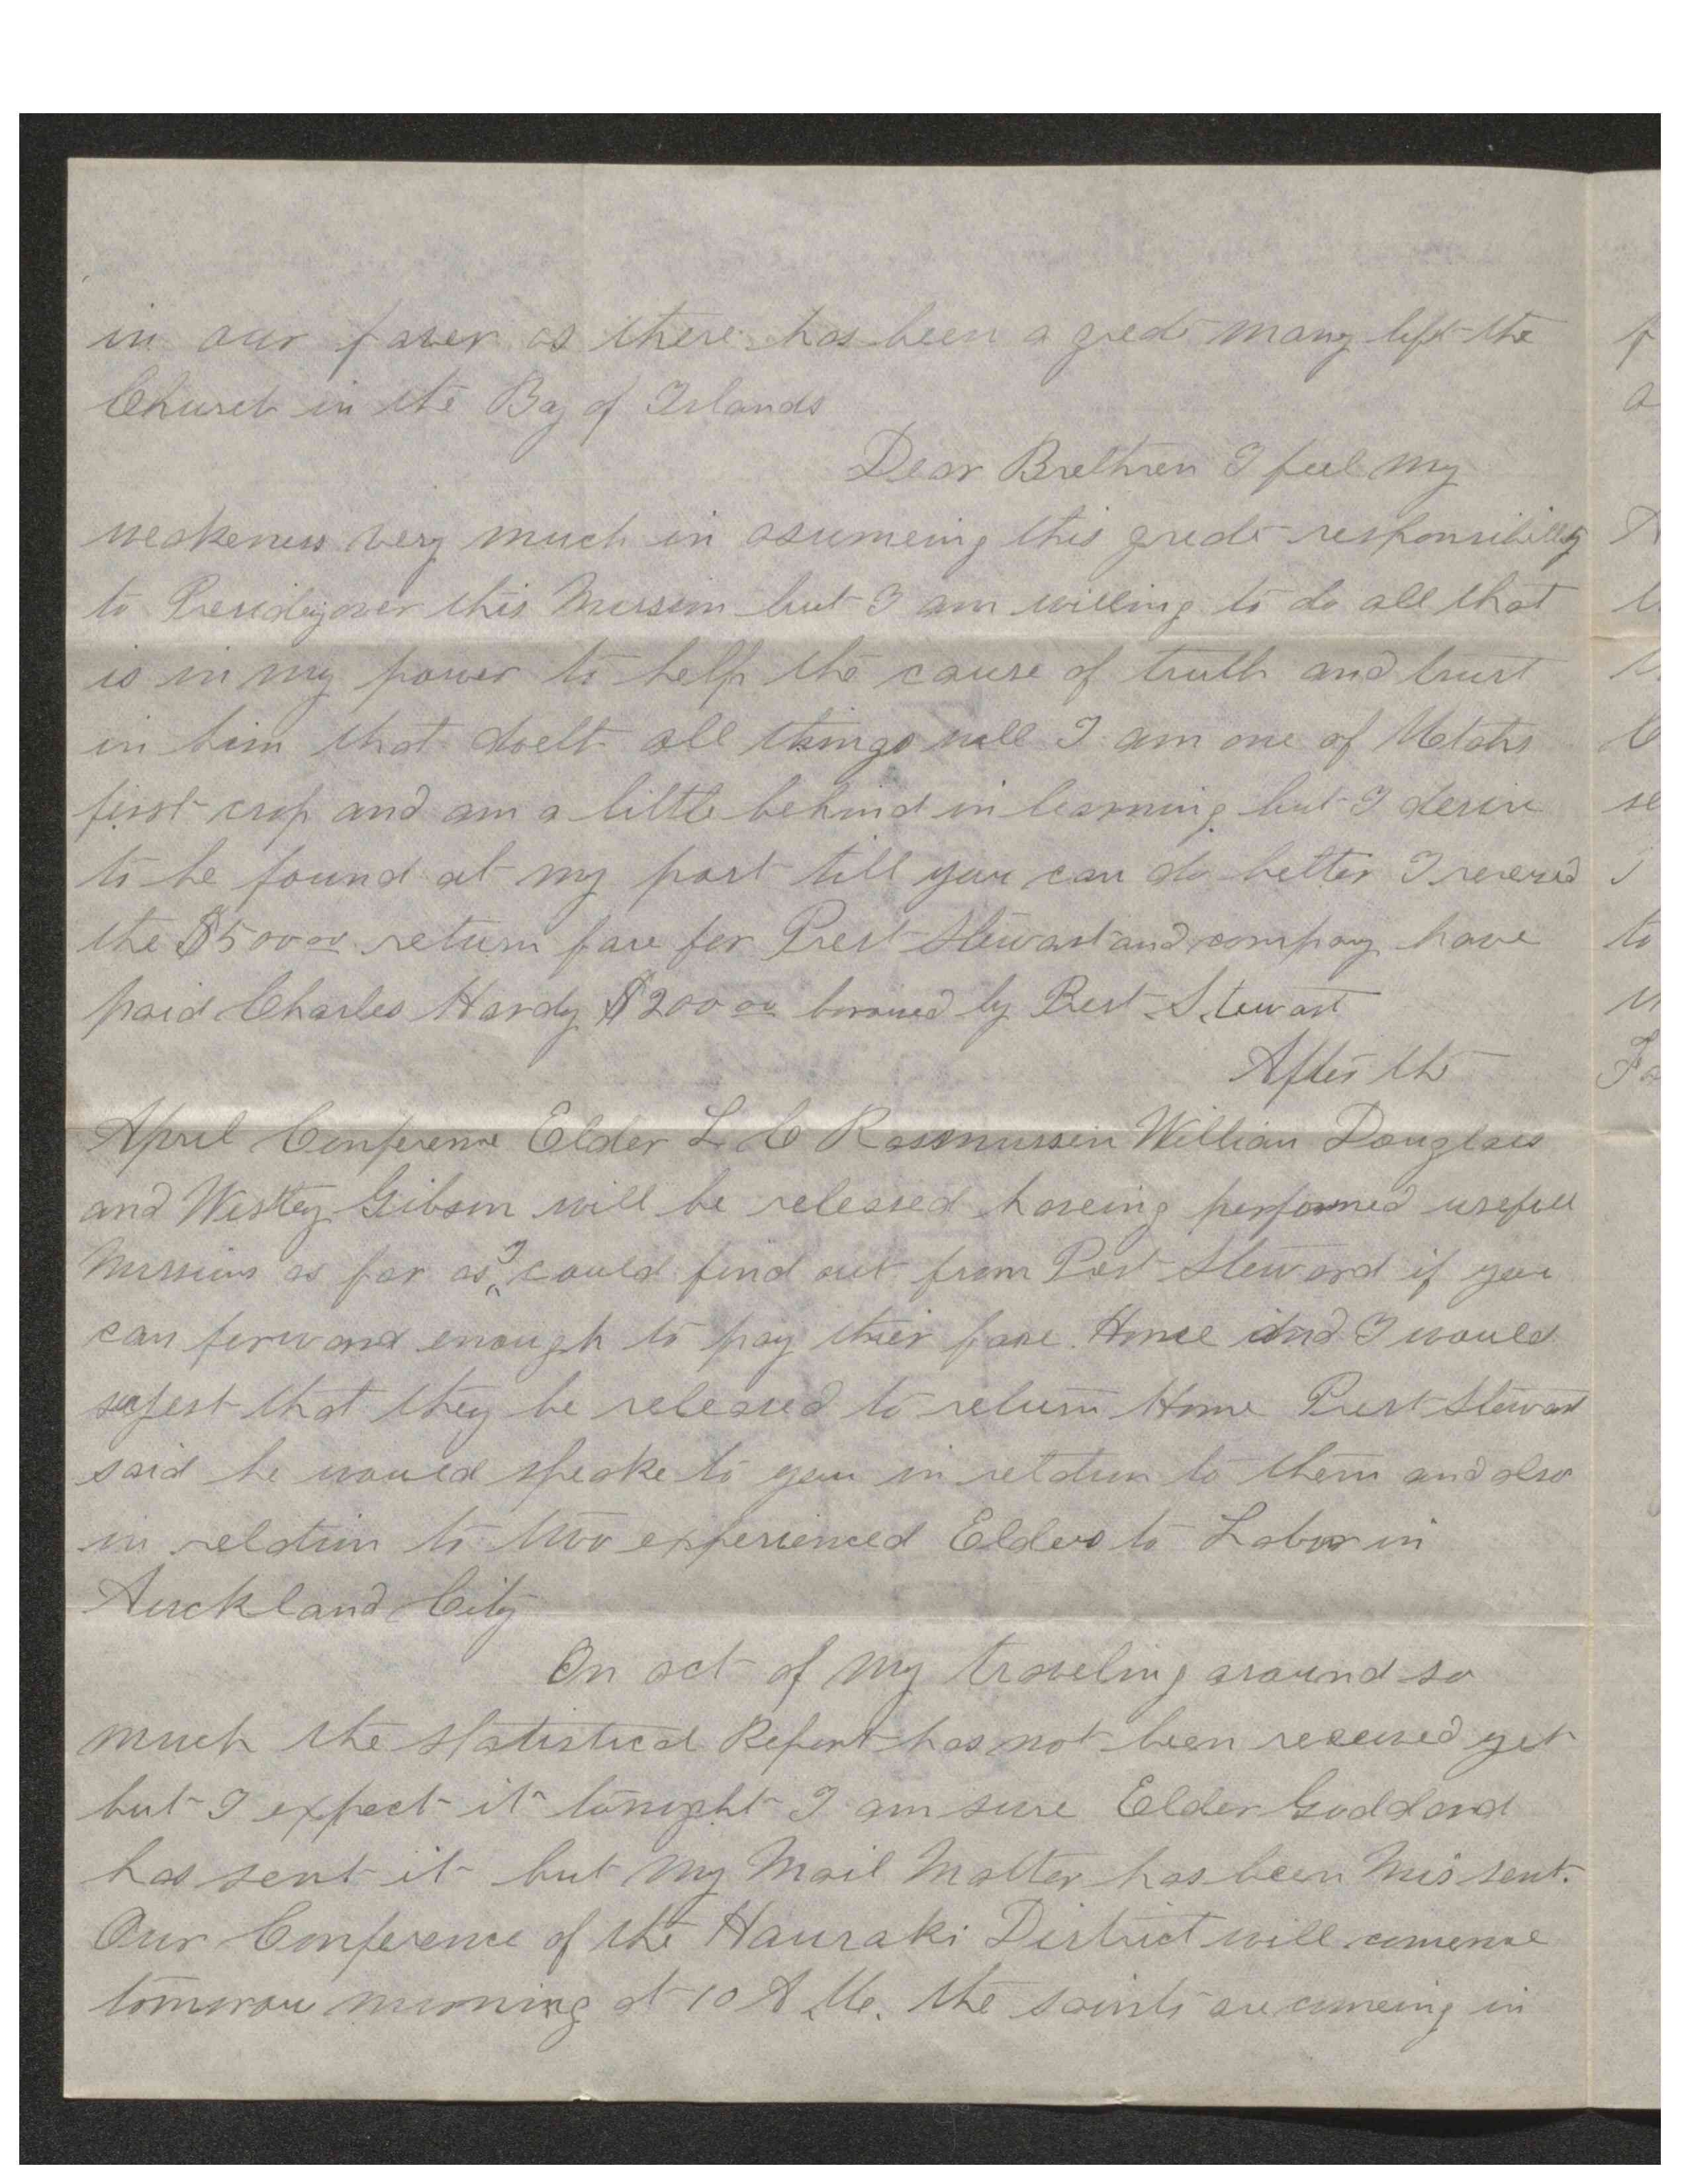 in our faver as there has been a gredt many left the
Church in the Bay of Islands
Dear Brethren I feel my
weakeness very much in asumeing this gredt responsibillity
to Preside over this Mission but I am willing to do all that
is in my power to help the cause of truth and trust
in him that doelt all things well I am one of Utahs
first crop and am a little behind in learning but I desire
to be found at my post till you can do better I recieved
the $500 00 return fare for Prest Stewart and company have
paid Charles Hardy $200 00 borowed by Prest Stewart
After the
April Conference Elder L C Rasmussen William Douglass
and Westley Gibson will be released haveing performed usefull
Missions as far as I could find out from Prest Steward if you
can forward enough to pay thier fare Home and I would
sugest that they be released to return Home Prest Steward
said he would speake to you in relation to them and also
in relation to two experienced Elders to Labor in
Auckland City
On act of my traveling around so
much the Statistical Report has not been received yet
but I expect it tonight I am sure Elder Goddard
has sent it but my Mail Matter has been Mis sent.
Our Conference of the Hauraki District will comense
tomorow morning at 10 A.M. the saints are comeing in